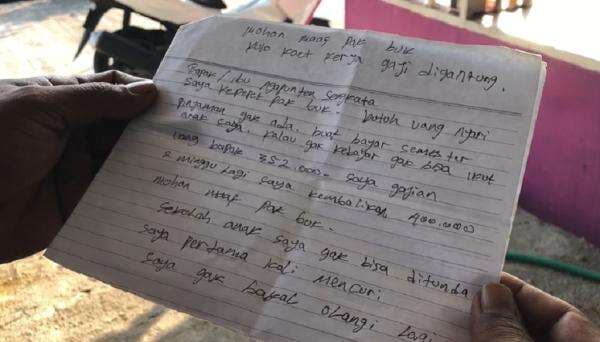 mohon maaf pak buk
kerja gaji digantung.
Bapak / ibu ngapunten sengkata
saya kepepet pak buk. butuh uang nyari
pinjaman gak ada. buat bayar semester
anak saya. kalau gak kebayar gak bisa ikut
uang bapak 352.000- saya gajian
2 minggu lagi saya kembalikan 400.000
mohon maaf pak buk.
sekolah anak saya gak bisa ditunda
saya pertama kali mencuri
saya gak bakal olangi lagi